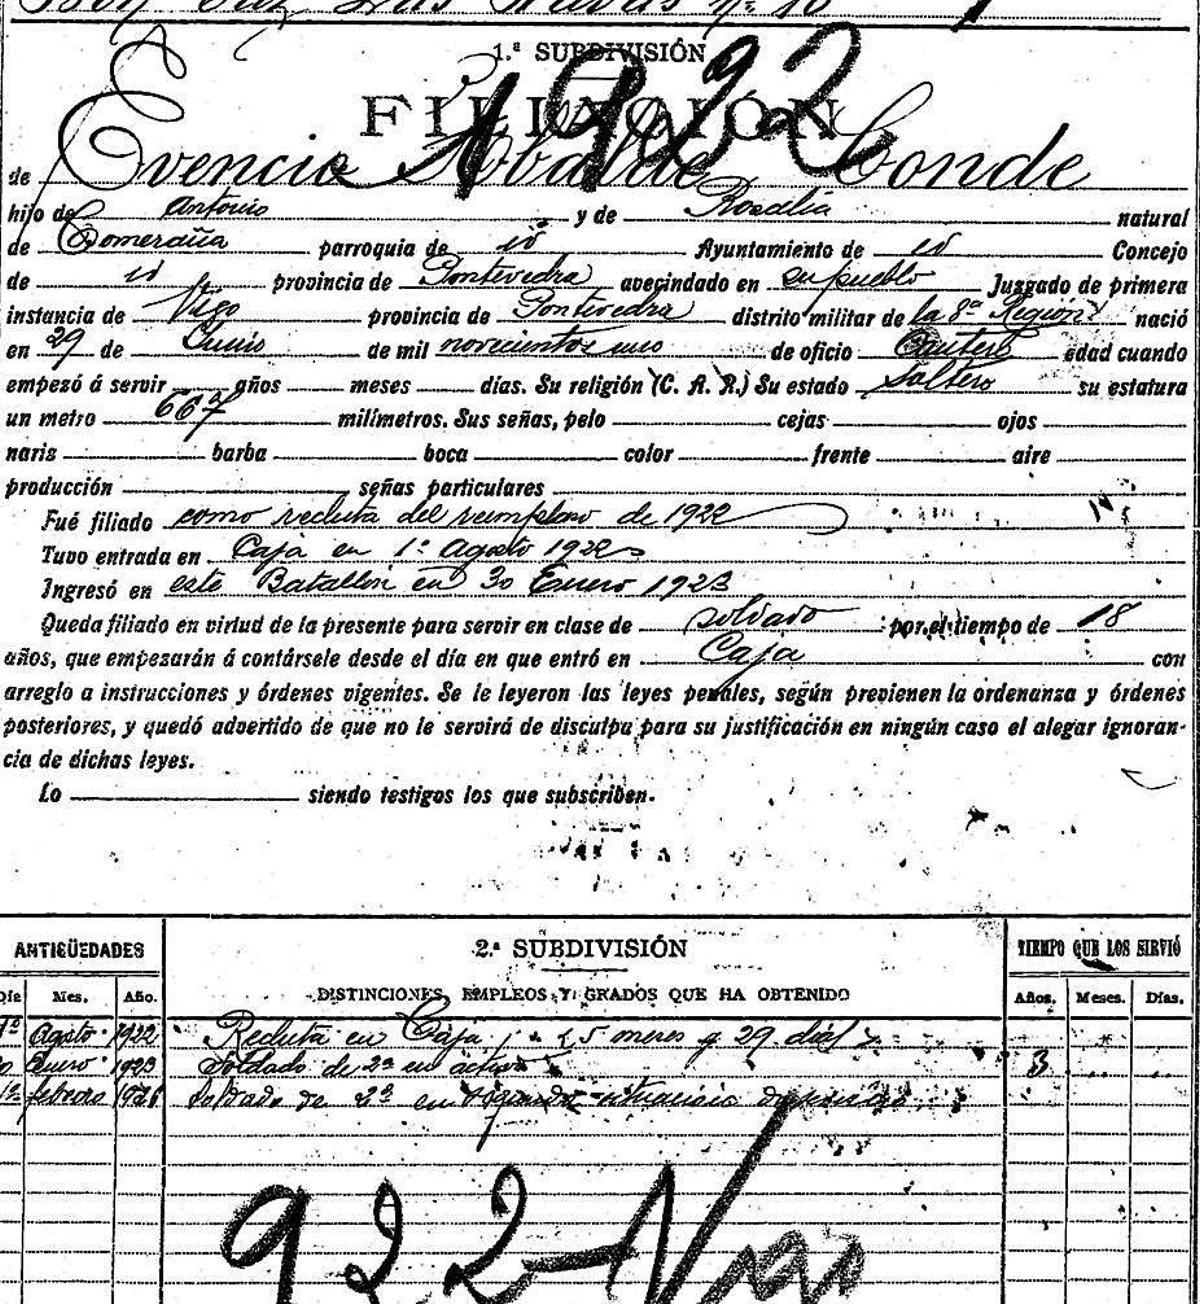 1.ª SUBDIVISIÓN
1922
FILIACIÓN
de Evencio Abalde Conde
hijo de Antonio y de Rosalía natural
de parroquia de id Ayuntamiento de id Concejo
de id provincia de Pontevedra avecindado en su pueblo Juzgado de primera
instancia de Vigo provincia de Pontevedra distrito militar de la 8ª Región nació
en 29 de Junio de mil novecientos uno de oficio Cantero edad cuando
empezó á servir años meses días. Su religión (C. A. R.) Su estado Soltero su estatura
un metro 667 milímetros. Sus señas, pelo cejas ojos
nariz barba boca color frente aire
producción señas particulares
Fué filiado como recluta del reemplazo de 1922
Tuvo entrada en Caja en 1º Agosto 1922
Ingresó en este Batallón en 30 Enero 1923
Queda filiado en virtud de la presente para servir en clase de soldado por el tiempo de 18
años, que empezarán á contársele desde el día en que entró en Caja con
arreglo a instrucciones y órdenes vigentes. Se le leyeron las leyes penales, según previenen la ordenanza y órdenes
posteriores, y quedó advertido de que no le servirá de disculpa para su justificación en ningún caso el alegar ignoran-
cia de dichas leyes.
Lo siendo testigos los que subscriben.
ANTIGÜEDADES 2.ª SUBDIVISIÓN TIEMPO QUE LOS SIRVIÓ
Día Mes. Año. DISTINCIONES, EMPLEOS Y GRADOS QUE HA OBTENIDO Años. Meses. Días.
1º Agosto 1922 Recluta en Caja 5 meses y 29 días
Enero 1923 Soldado de 2ª en activo 3
1º febrero 1926 Soldado de 2ª en segunda situación
922 Vigo